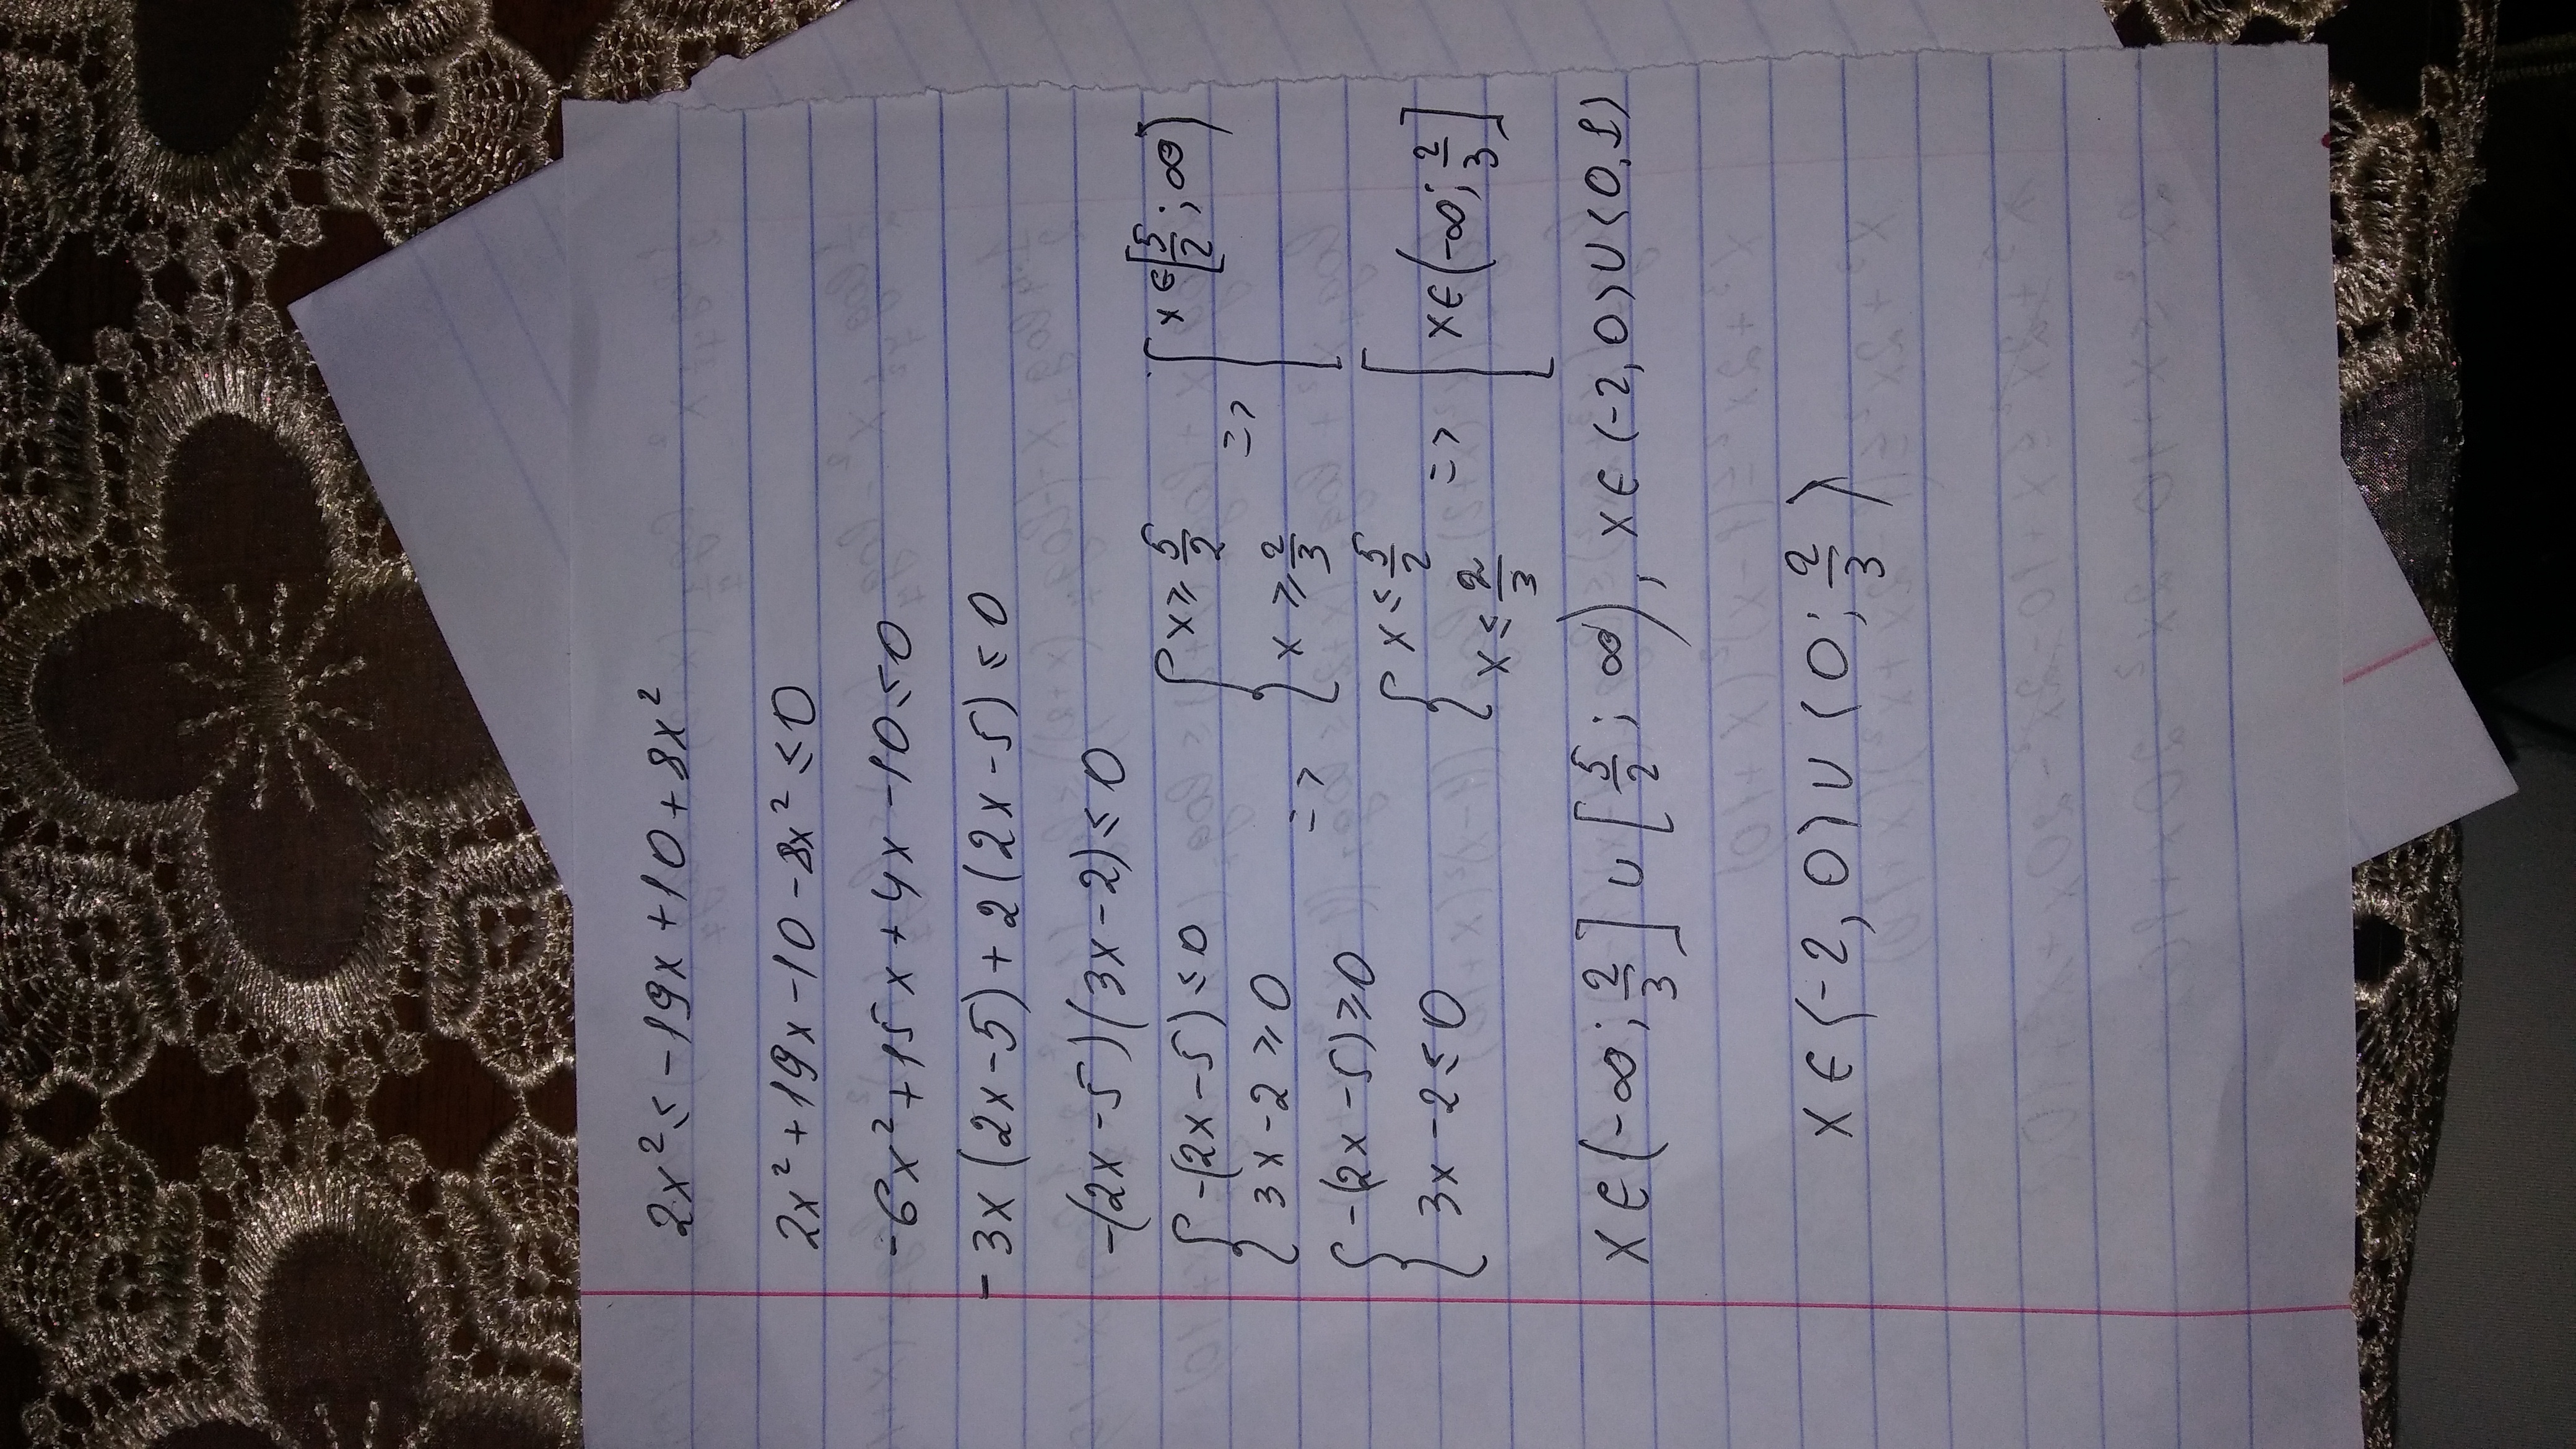 2x² ≤ -19x + 10 + 8x²
2x² + 19x - 10 - 8x² ≤ 0
-6x² + 15x + 4x - 10 ≤ 0
-3x(2x-5) + 2(2x-5) ≤ 0
-(2x-5)(3x-2) ≤ 0
{ -(2x-5) ≤ 0 { x ≥ 5/2 => [ x ∈ [5/2; ∞)
{ 3x-2 ≥ 0 => { x ≥ 2/3
{ -(2x-5) ≥ 0 { x ≤ 5/2
{ 3x-2 ≤ 0 { x ≤ 2/3 => [ x ∈ (-∞; 2/3]
x ∈ (-∞; 2/3] ∪ [5/2; ∞), x ∈ (-2, 0) ∪ (0,1)
x ∈ (-2, 0) ∪ (0; 2/3)